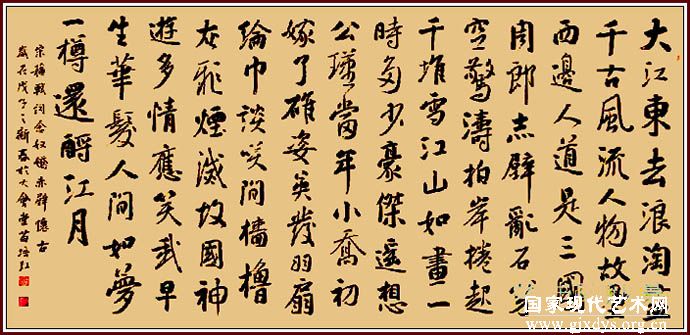 大江東去浪淘盡
千古風流人物故壘
西邊人道是三國
周郎赤壁亂石穿
空驚濤拍岸捲起
千堆雪江山如畫一
時多少豪傑遙想
公瑾當年小喬初
嫁了雄姿英發羽扇
綸巾談笑間檣櫓
灰飛煙滅故國神
遊多情應笑我早
生華髮人間如夢
一樽還酹江月
宋蘇軾詞念奴嬌赤壁懷古
歲在戊子之新春於大會堂苗培红
国家现代艺术网
www.gjxdys.org.cn